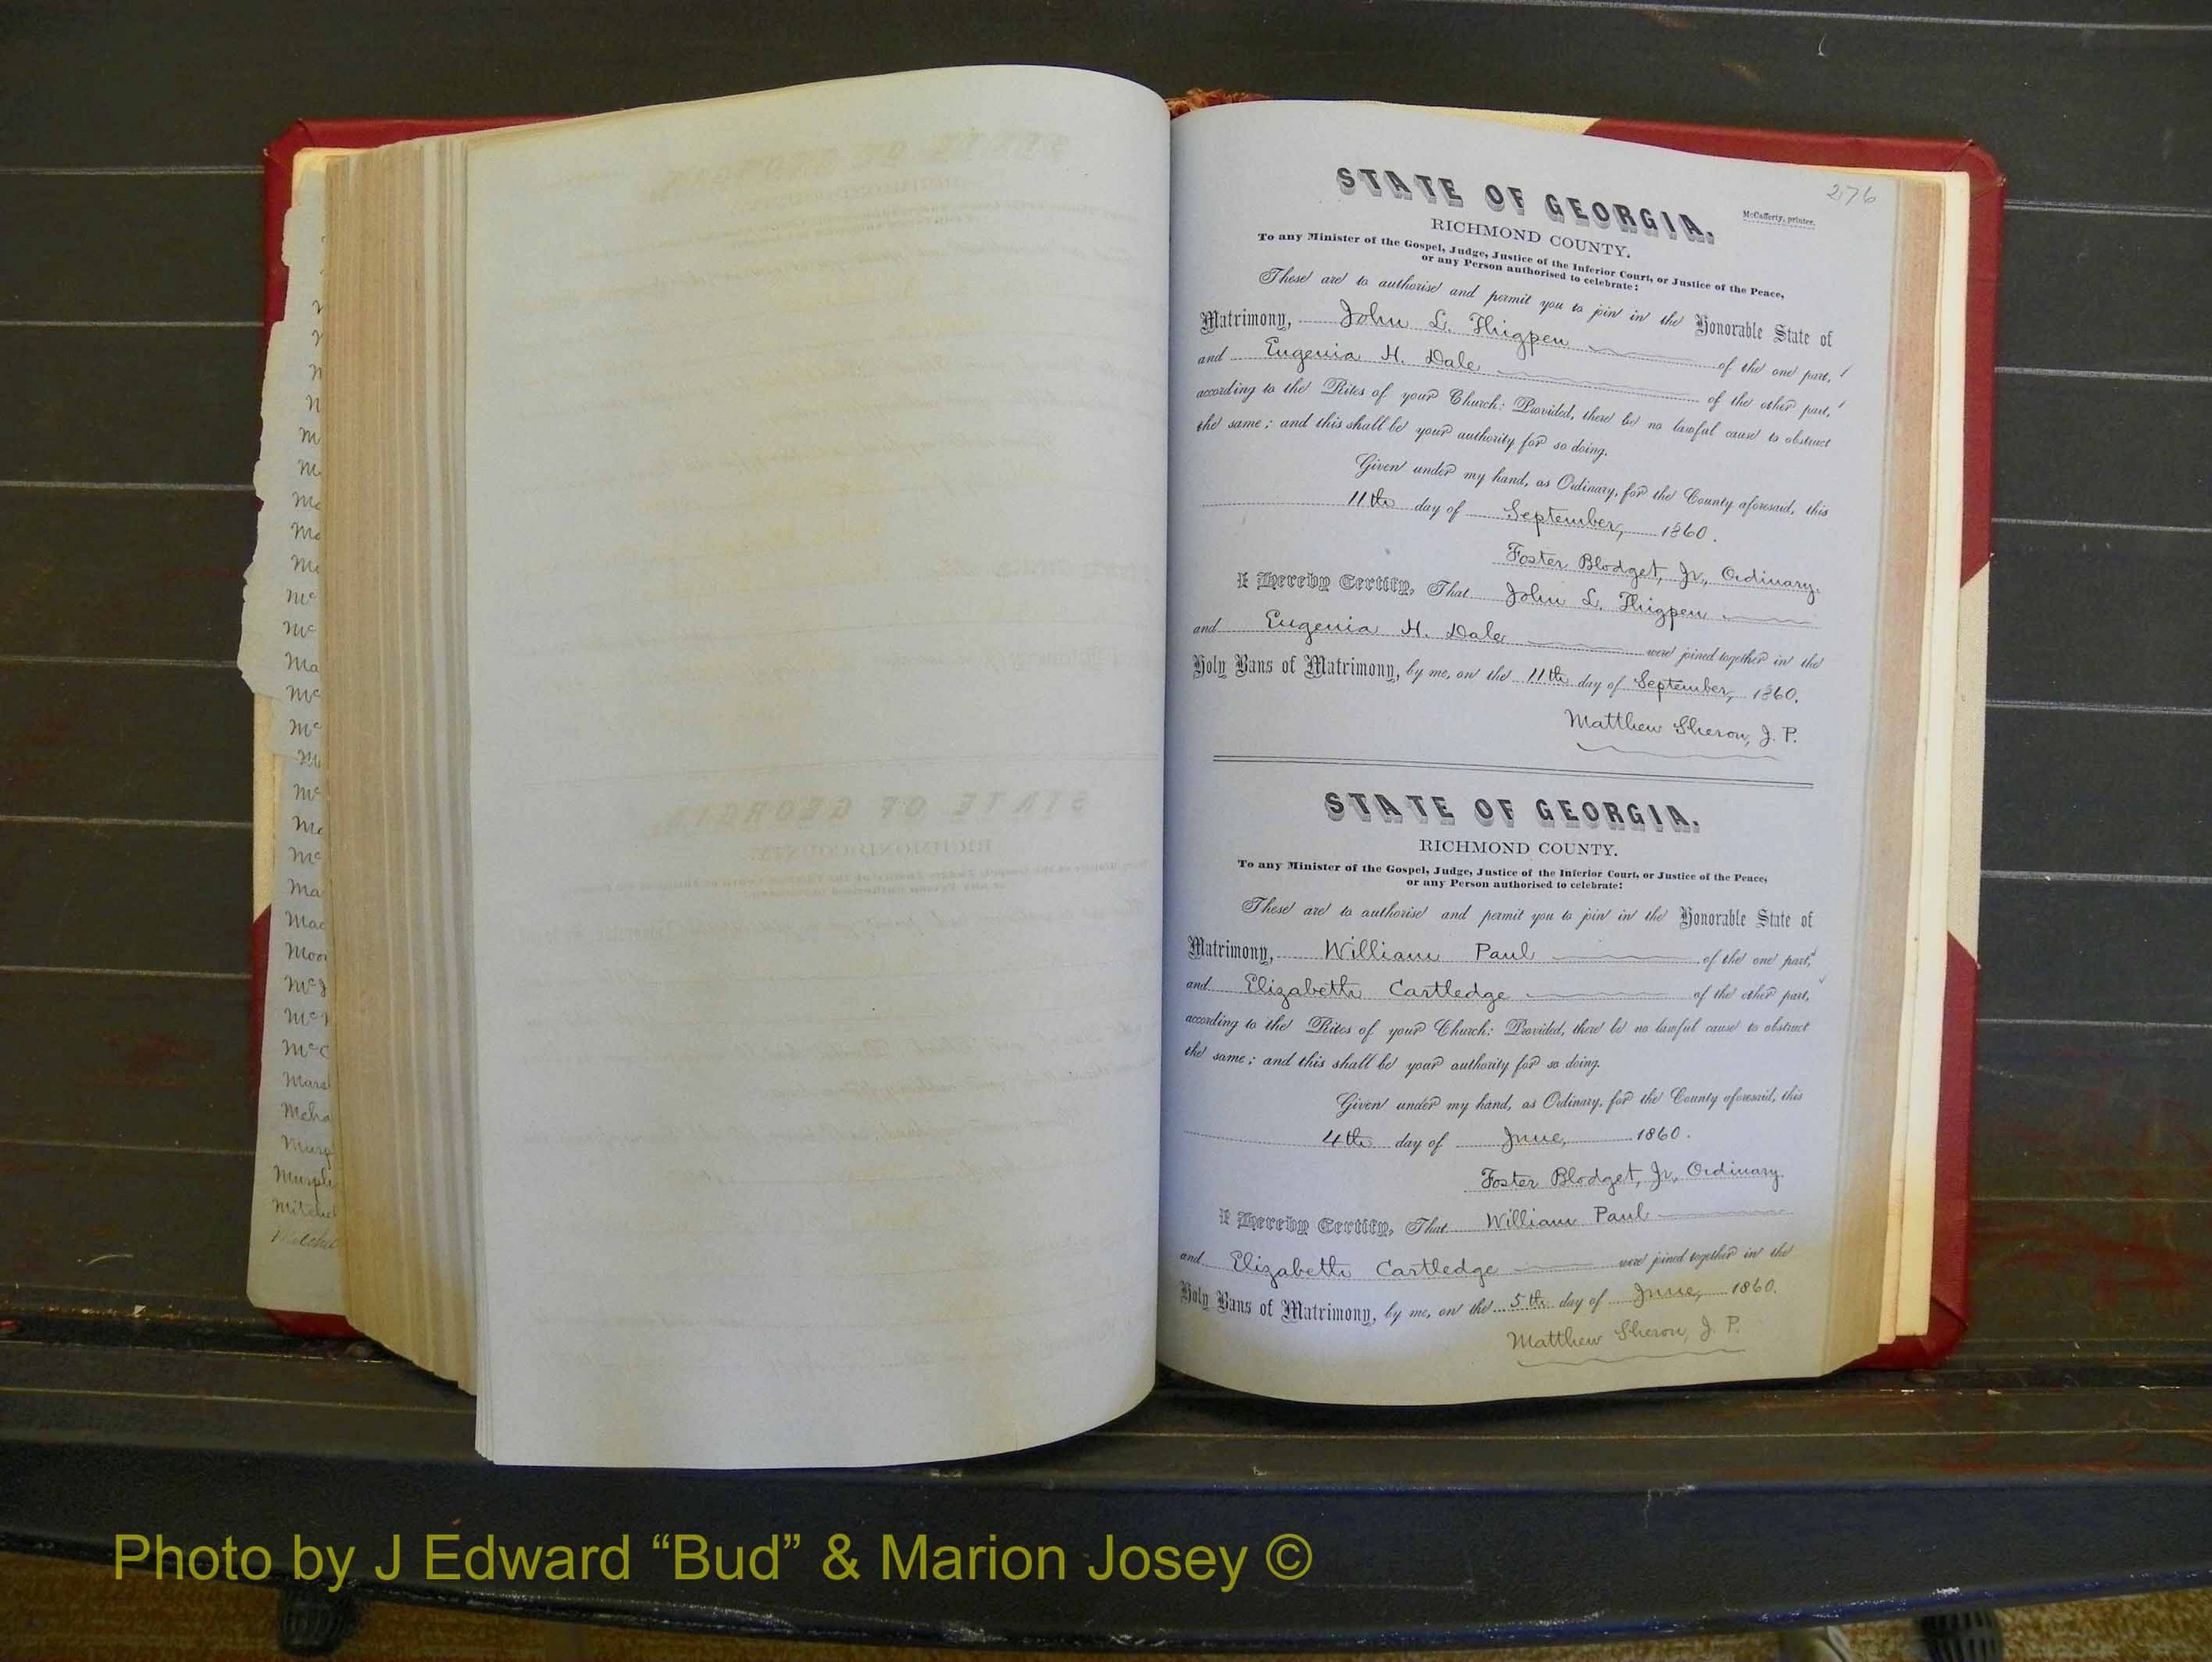 276
STATE OF GEORGIA.
McCafferty, printer.
RICHMOND COUNTY.
To any Minister of the Gospel, Judge, Justice of the Inferior Court, or Justice of the Peace,
or any Person authorised to celebrate:
These are to authorise and permit you to join in the Honorable State of
Matrimony, John L. Thigpen of the one part,
and Eugenia H. Dale of the other part,
according to the Rites of your Church: Provided, there be no lawful cause to obstruct
the same; and this shall be your authority for so doing.
Given under my hand, as Ordinary, for the County aforesaid, this
11th day of September, 1860.
Foster Blodget, Jr., Ordinary.
I Hereby Certify, That John L. Thigpen
and Eugenia H. Dale were joined together in the
Holy Bans of Matrimony, by me, on the 11th day of September, 1860.
Matthew Sheron, J. P.
STATE OF GEORGIA.
RICHMOND COUNTY.
To any Minister of the Gospel, Judge, Justice of the Inferior Court, or Justice of the Peace,
or any Person authorised to celebrate:
These are to authorise and permit you to join in the Honorable State of
Matrimony, William Paul of the one part,
and Elizabeth Cartledge of the other part,
according to the Rites of your Church: Provided, there be no lawful cause to obstruct
the same; and this shall be your authority for so doing.
Given under my hand, as Ordinary, for the County aforesaid, this
4th day of June, 1860.
Foster Blodget, Jr., Ordinary.
I Hereby Certify, That William Paul
and Elizabeth Cartledge were joined together in the
Holy Bans of Matrimony, by me, on the 5th day of June, 1860.
Matthew Sheron, J. P.
Photo by J Edward “Bud” & Marion Josey ©